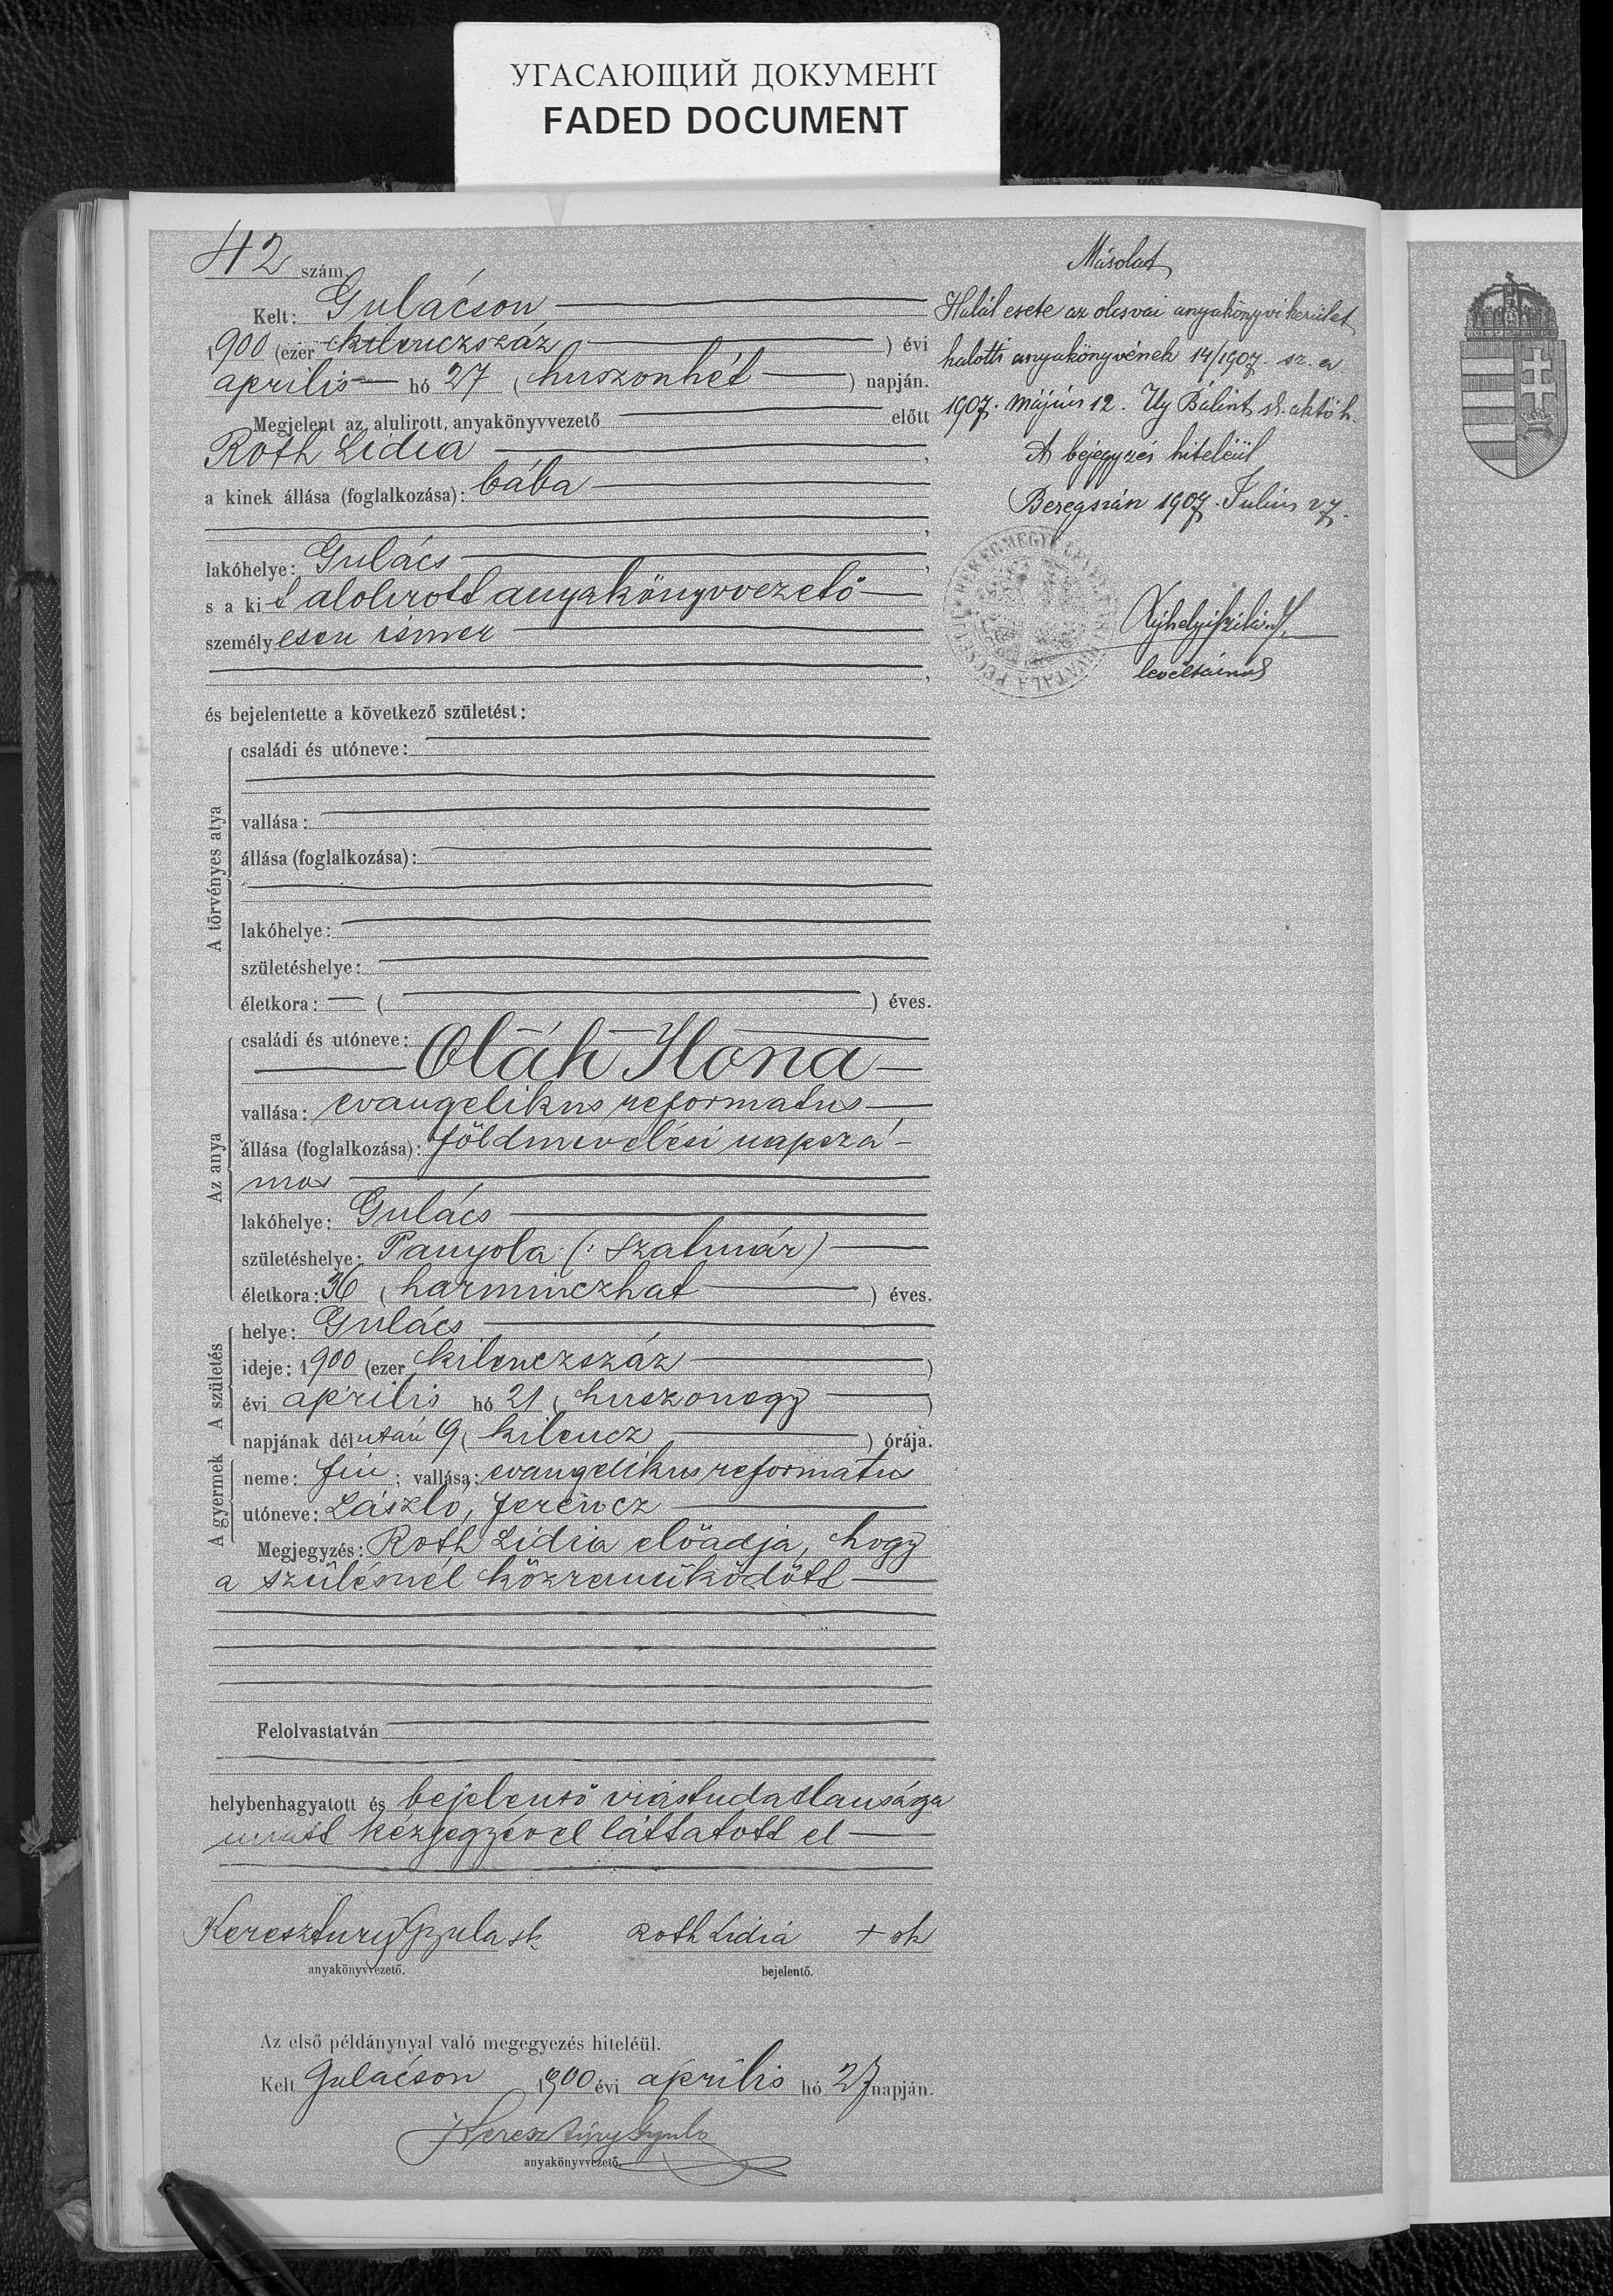 УГАСАЮЩИЙ ДОКУМЕНТ
FADED DOCUMENT
42 szám.
Kelt: Gulácson
1900 (ezer kilenczszáz ) évi
április hó 27 (huszonhét ) napján.
Megjelent az alulirott anyakönyvvezető előtt
Roth Lidia ,
a kinek állása (foglalkozása): bába
,
lakóhelye: Gulács ,
s a kit alolirott anyakönyvvezető
személyesen ismer
,
és bejelentette a következő születést:
A törvényes atya
családi és utóneve:
vallása:
állása (foglalkozása):
lakóhelye:
születéshelye:
életkora: — ( ) éves.
Az anya
családi és utóneve:
Oláh Ilona
vallása: evangelikus reformatus
állása (foglalkozása): földmivelési napszá-
mos
lakóhelye: Gulács
születéshelye: Panyola (: Szatmár)
életkora: 36 (harminczhat ) éves.
A születés
helye: Gulács
ideje: 1900 (ezer kilenczszáz )
évi április hó 21 (huszonegy )
napjának délután 9 (kilencz ) órája.
A gyermek
neme: fiu; vallása: evangelikus reformatus
utóneve: László, Ferencz
Megjegyzés: Roth Lidia előadja, hogy
a szülésnél közremüködött
Felolvastatván
helybenhagyatott és bejelentő irástudatlansága
miatt kézjegyével láttatott el
Keresztury Gyula sk Roth Lidia + sk
anyakönyvvezető. bejelentő.
Az első példánynyal való megegyezés hiteléül.
Kelt Gulácson 1900 évi április hó 27 napján.
Keresztury Gyula
anyakönyvvezető.
Másolat
Halál esete az olcsvai anyakönyvi kerület
halotti anyakönyvének 14/1907. sz. a
1907. május 12. Uj Bálint sk. aktöh.
A bejegyzés hiteléül
Beregszász 1907. Julius 27.
levéltárnok